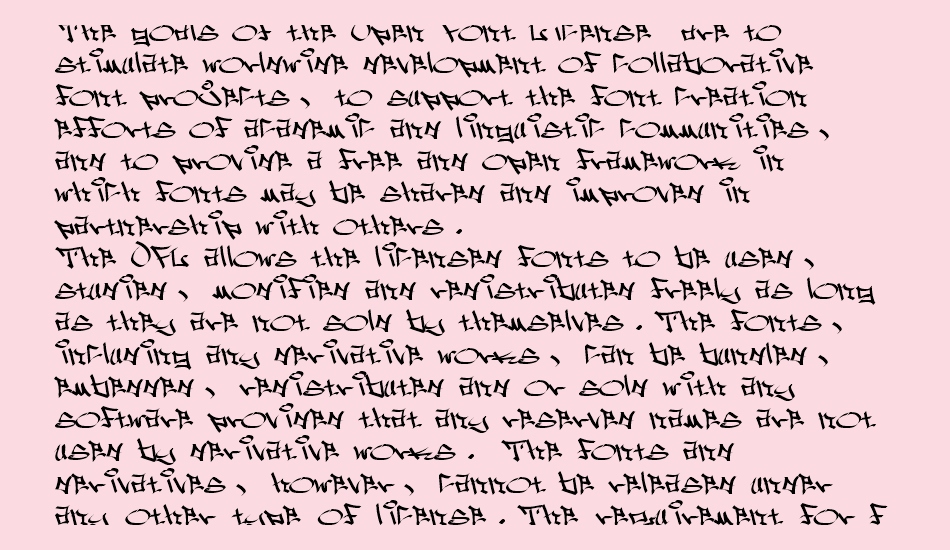 The goals of the Open Font License are to
stimulate worldwide development of collaborative
font projects, to support the font creation
efforts of academic and linguistic communities,
and to provide a free and open framework in
which fonts may be shared and improved in
partnership with others.
The OFL allows the licensed fonts to be used,
studied, modified and redistributed freely as long
as they are not sold by themselves. The fonts,
including any derivative works, can be bundled,
embedded, redistributed and or sold with any
software provided that any reserved names are not
used by derivative works. The fonts and
derivatives, however, cannot be released under
any other type of license. The requirement for f